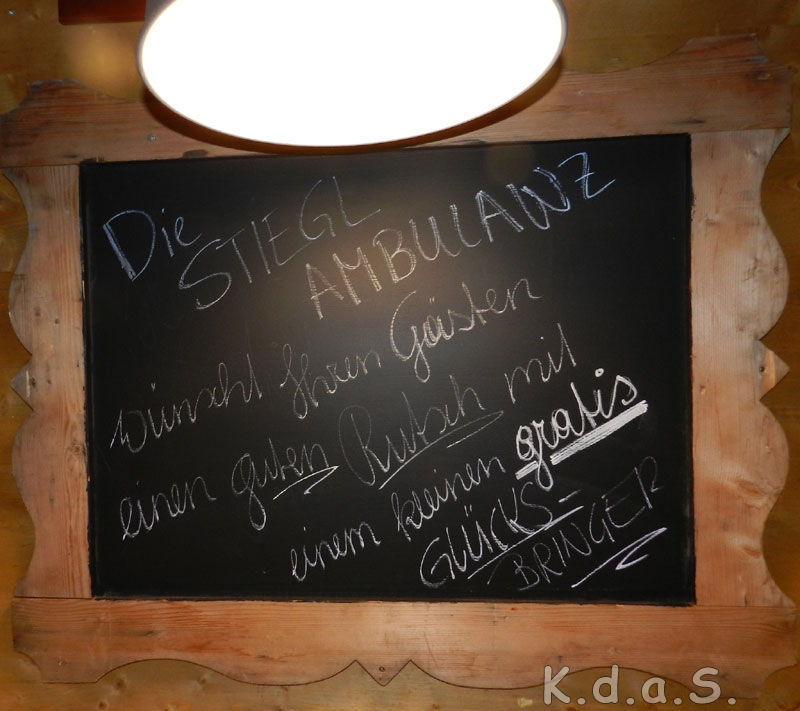 Die
STIEGL
AMBULANZ
wünscht Ihren Gästen
einen guten Rutsch mit
einem kleinen gratis
GLÜCKS-
BRINGER
K.d.a.S.